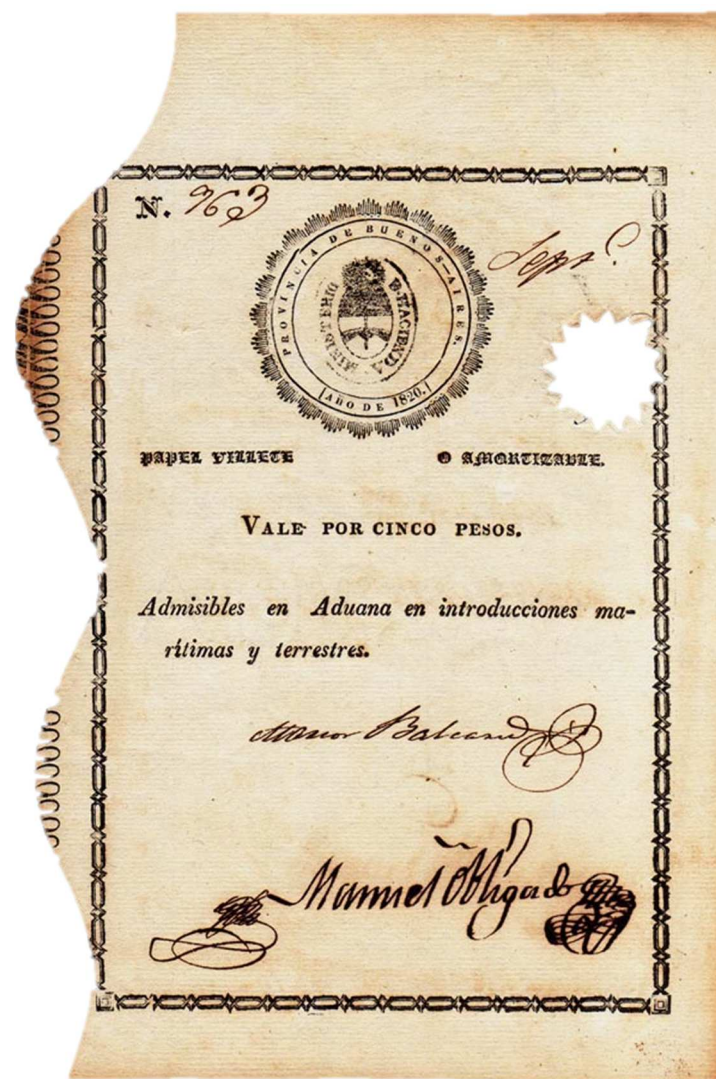 N. 963
PROVINCIA DE BUENOS-AIRES.
Sept.e
MINISTERIO D. HACIENDA
AÑO DE 1820.
PAPEL VILLETE O AMORTIZABLE.
VALE POR CINCO PESOS.
Admisibles en Aduana en introducciones ma-
rítimas y terrestres.
Balcarce
Manuel Obligado